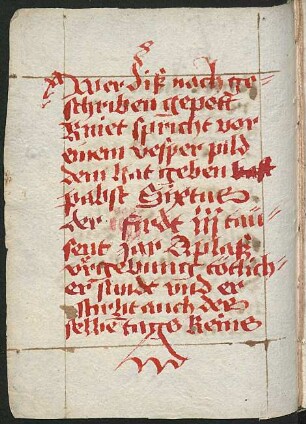 Wer diß nach ge=
schriben gepett
kniet spricht vor
einem vesper pild
dem hat geben
pabst Sixtus
der firdt iij tau
sent Jar Aplaß
vergebung tötlich
er sünde vnd er
stirbt auch der
selbe tags keins